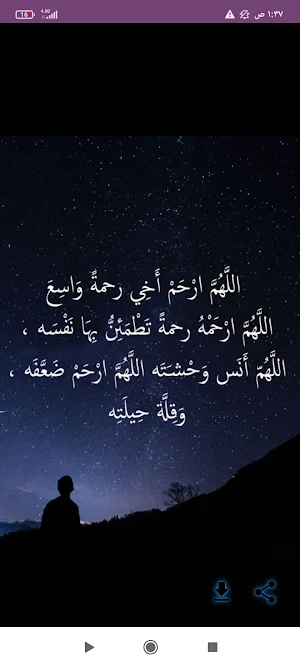 ١:٣٧ ص
4.5G
16
اللَّهُمَّ ارْحَمْ أَخِي رحمةً وَاسِعَ
اللَّهُمَّ ارْحَمْهُ رحمةً تَطْمَئِنُّ بِهَا نَفْسَه ،
اللَّهُمّ أَنَس وَحْشَتَه اللَّهُمَّ ارْحَمْ ضَعَّفَه ،
وَقِلَّة حِيلَتِه